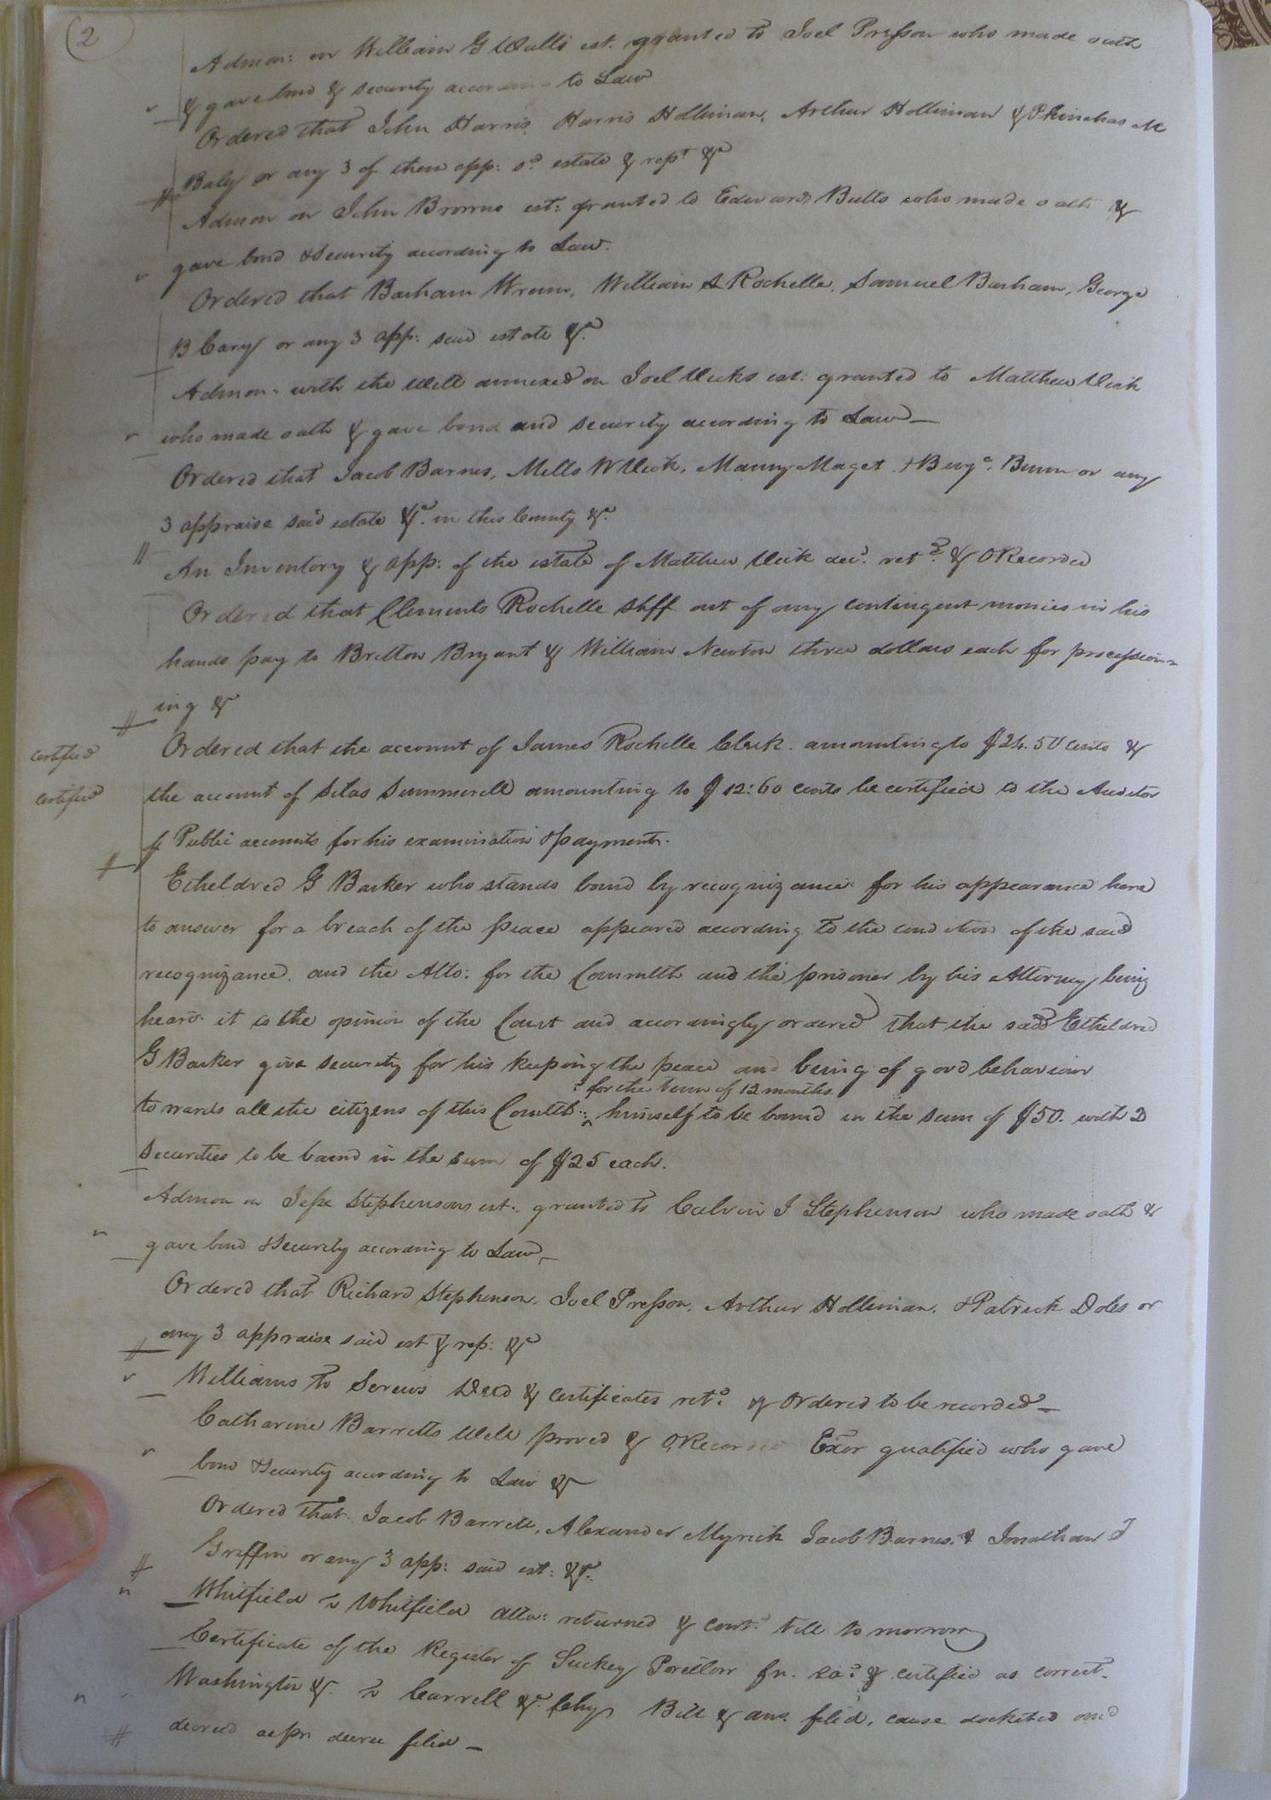 2
Admon: on William G Wall's est. granted to Joel Presson who made oath
& gave bond & security according to Law
Ordered that John Harris, Harris Holliman, Arthur Holliman & Phinehas M
Baly or any 3 of them app: sd. estate & rept &c
Admon on John Browns est: granted to Edwards Butts who made oath &
gave bond & Security according to Law.
Ordered that Barham Wrenn, William S Rochelle, Samuel Barham, George
B Cary or any 3 app: said estate &c.
Admon. with the Will annexed on Joel Vicks est: granted to Matthew Vick
who made oath & gave bond and security according to Law—
Ordered that Jacob Barnes, Mills W Vick, Manny Maget & Benja. Bunn or any
3 appraise said estate &c. in this County &c.
An Inventory & app: of the estate of Matthew Vick decd. retd. & ORecorded
Ordered that Clements Rochelle Shff out of any contingent monies in his
hands pay to Britton Bryant & William Newton three dollars each for procession-
ing &
certified Ordered that the account of James Rochelle Clerk. amounting to $24.50 cents &
certified the account of Silas Summerell amounting to $12:60 cents be certified to the Auditor
of Public accounts for his examination & payment.
Etheldred G Barker who stands bound by recognizance for his appearance here
to answer for a breach of the peace appeared according to the condition of the said
recognizance. and the Atto: for the Commlth and the prisoner by his Attorney being
heard it is the opinion of the Court and accordingly ordered that the said Etheldred
G Barker give security for his keeping the peace and being of good behaviour
for the term of 12 months
towards all the citizens of this Comlth: himself to be bound in the sum of $50. with 2
securities to be bound in the sum of $25 each.
Admon on Jesse Stephensons est. granted to Calvin J Stephenson who made oath &
gave bond & Security according to Law,—
Ordered that Richard Stephenson, Joel Presson, Arthur Holliman, & Patrick Doles or
any 3 appraise said est & rep: &c
Williams to Screws Deed & certificates retd. & Ordered to be recorded—
Catharine Barretts Will proved & ORecorded Exor qualified who gave
bond & Security according to Law &
Ordered that Jacob Barrett, Alexander Myrick Jacob Barnes. & Jonathan T
Griffin or any 3 app: said est: &c.
Whitfield v Whitfield atta: returned & contd till to morrow
Certificate of the Register of Suckey fn. & certified as correct.
Washington &. v Carrell &c. Chy Bill & ans filed, cause docketed and
decreed as pr decree filed—